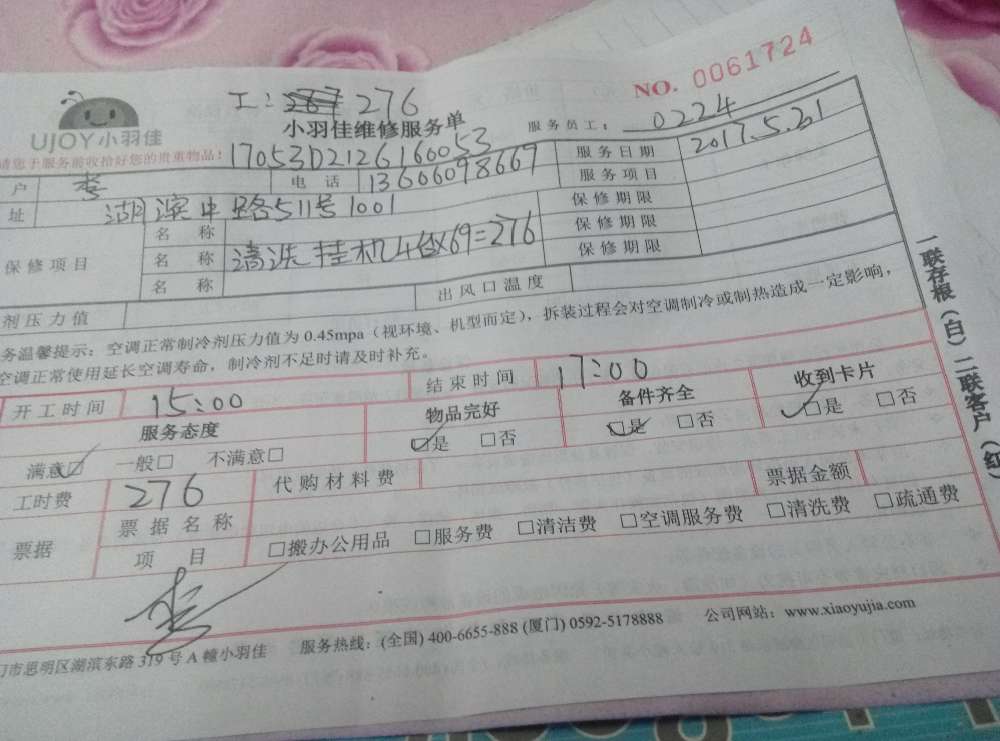 NO. 0061724
工:267 276
UJOY小羽佳
小羽佳维修服务单
服务员工: 0224
请您于服务前收拾好您的贵重物品! 17053D2126160053
服务日期 2017.5.21
户 李 电话 13606098667
服务项目
址 湖滨中路511号1001
保修期限
保修项目 名称
保修期限
名称 清洗挂机4台×69=276
保修期限
名称
剂压力值 出风口温度
务温馨提示: 空调正常制冷剂压力值为 0.45mpa (视环境、机型而定), 拆装过程会对空调制冷或制热造成一定影响,
空调正常使用延长空调寿命, 制冷剂不足时请及时补充。
开工时间 15:00 结束时间 17:00
服务态度 物品完好 备件齐全 收到卡片
满意☑ 一般□ 不满意□ ☑是 □否 ☑是 □否 ☑是 □否
工时费 276 代购材料费 票据金额
票据 票据名称
项目 □搬办公用品 □服务费 □清洁费 □空调服务费 □清洗费 □疏通费
李
门市思明区湖滨东路 319 号 A 幢小羽佳 服务热线: (全国) 400-6655-888 (厦门) 0592-5178888 公司网站: www.xiaoyujia.com
一联存根(白)二联客户(红)